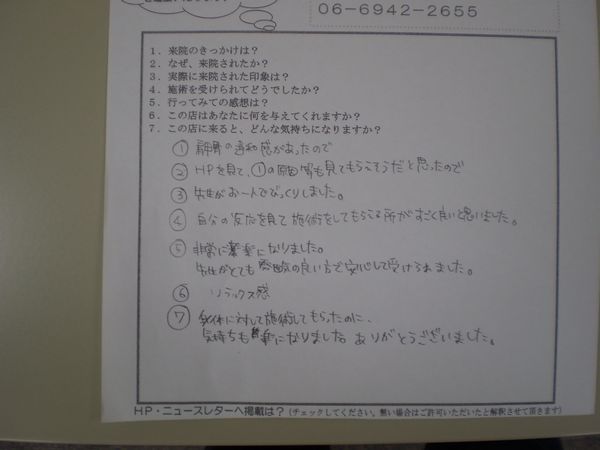 06-6942-2655
1．来院のきっかけは？
2．なぜ、来院されたか？
3．実際に来院された印象は？
4．施術を受けられてどうでしたか？
5．行ってみての感想は？
6．この店はあなたに何を与えてくれますか？
7．この店に来ると、どんな気持ちになりますか？
① 肩胛骨の違和感があったので
② HPを見て、①の原因等も見てもらえそうだと思ったので
③ 先生がお一人でびっくりしました。
④ 自分の反応を見て施術をしてもらえる所がすごく良いと思いました。
⑤ 非常に楽になりました。
先生がとても感じの良い方で安心して受けられました。
⑥ リラックス感
⑦ 身体に対して施術してもらったのに、
気持ちも楽になりました。ありがとうございました。
HP・ニュースレターへ掲載は？（チェックしてください。無い場合はご許可いただいたと解釈させて頂きます）